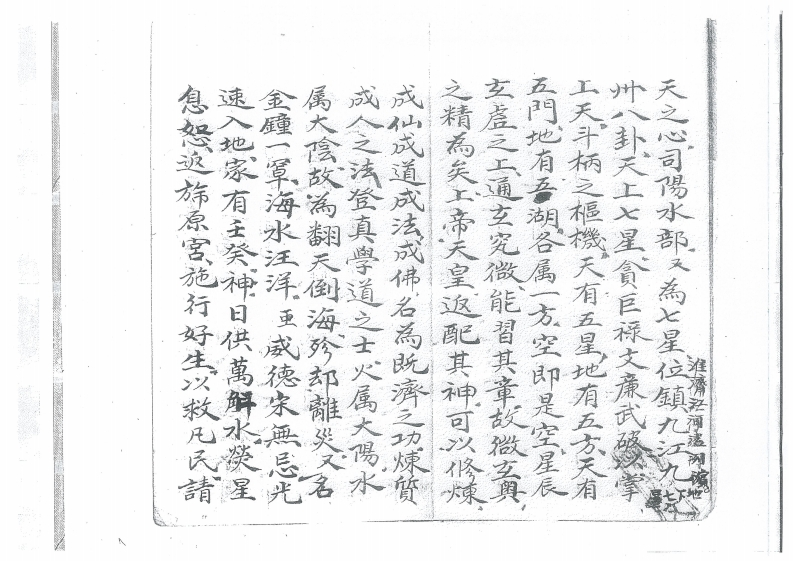 天之心司陽水部又為七星位鎮九江九
卅八卦天上七星貪巨祿文廉武破以掌
上天斗柄之樞機天有五星地有五方天有
五門地有五湖各属一方空即是空星辰
玄虛之上通玄究微能習其章故微玄與
之精為矣上帝天皇返配其神可以修煉
成仙成道成法成佛名為既濟之功煉質
成人之法登真學道之士火属大陽水
属大陰故為翻天倒海殄却離災又名
金鐘一罩海水汪洋 威德宋無忌光
速入地家有壬癸神日供萬觧水熒星
息恕返旆原宮施行好生以救凡民請
淮濟江河 湖 地